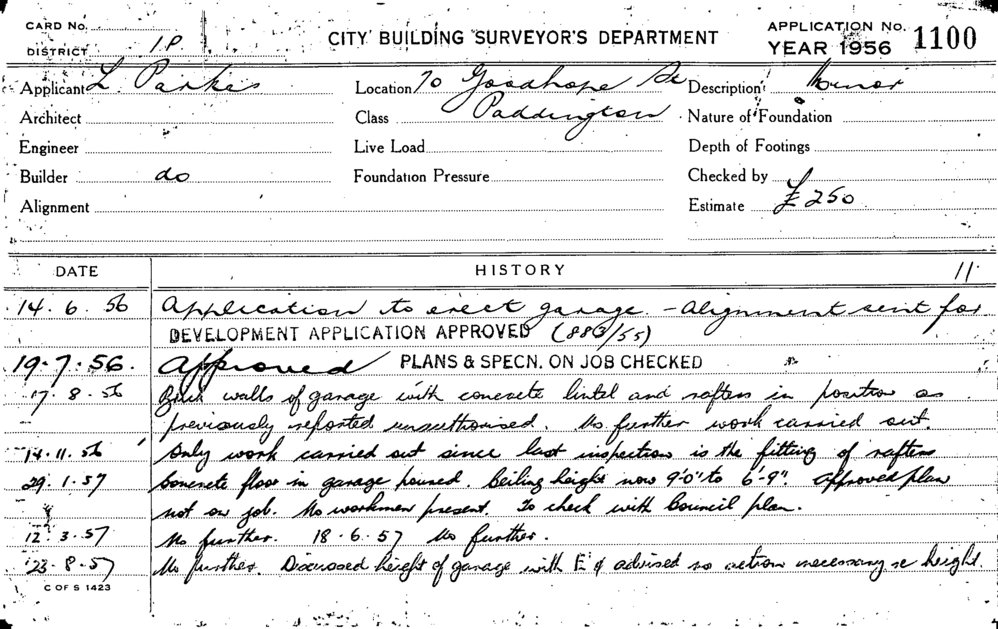 CARD No.
DISTRICT 1P
CITY BUILDING SURVEYOR'S DEPARTMENT
APPLICATION No. 1100
YEAR 1956
Applicant L. Parkes
Location 70 Goodhope St
Description Minor
Architect
Class Paddington
Nature of Foundation
Engineer
Live Load
Depth of Footings
Builder do
Foundation Pressure
Checked by
Alignment
Estimate £250
DATE HISTORY 11.
14.6.56 Application to erect garage - Alignment sent for
DEVELOPMENT APPLICATION APPROVED (883/55)
19.7.56. Approved PLANS & SPECN. ON JOB CHECKED
17.8.56 Brick walls of garage with concrete lintel and rafters in position as
previously reported unauthorised. No further work carried out.
14.11.56 Only work carried out since last inspection is the fitting of rafters
29.1.57 Concrete floor in garage poured. Ceiling height now 9'-0" to 6'-9". Approved plan
not on job. No workmen present. To check with Council plan.
12.3.57 No further. 18.6.57 No further.
23.8.57 No further. Discussed height of garage with E & advised no action necessary re height.
C OF S 1423